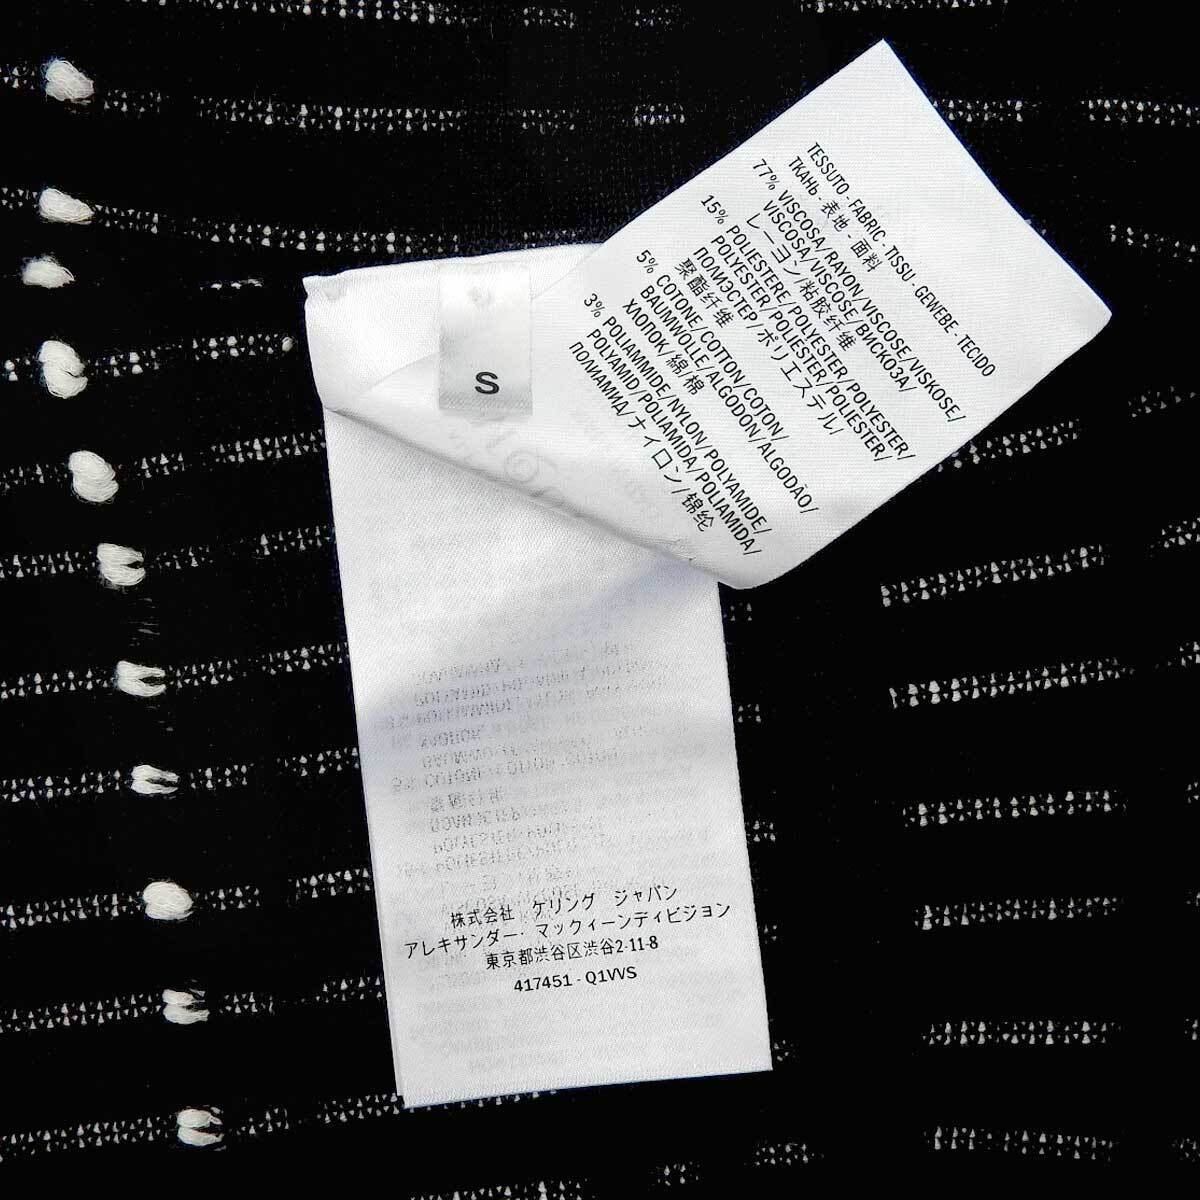 TESSUTO - FABRIC - TISSU - GEWEBE - TECIDO
ТКАНЬ - 表地 - 面料
77% VISCOSA/RAYON/VISCOSE/VISKOSE/
VISCOSA/VISCOSE/ВИСКОЗА/
レーヨン/粘胶纤维
15% POLIESTERE/POLYESTER/POLYESTER/
POLYESTER/POLIESTER/POLIESTER/
ПОЛИЭСТЕР/ポリエステル/
聚酯纤维
5% COTONE/COTTON/COTON/
BAUMWOLLE/ALGODON/ALGODÃO/
ХЛОПОК/綿/棉
3% POLIAMMIDE/NYLON/POLYAMIDE/
POLYAMID/POLIAMIDA/POLIAMIDA/
ПОЛИАМИД/ナイロン/锦纶
S
株式会社 ケリング ジャパン
アレキサンダー・マックィーンディビジョン
東京都渋谷区渋谷2-11-8
417451 - Q1VVS